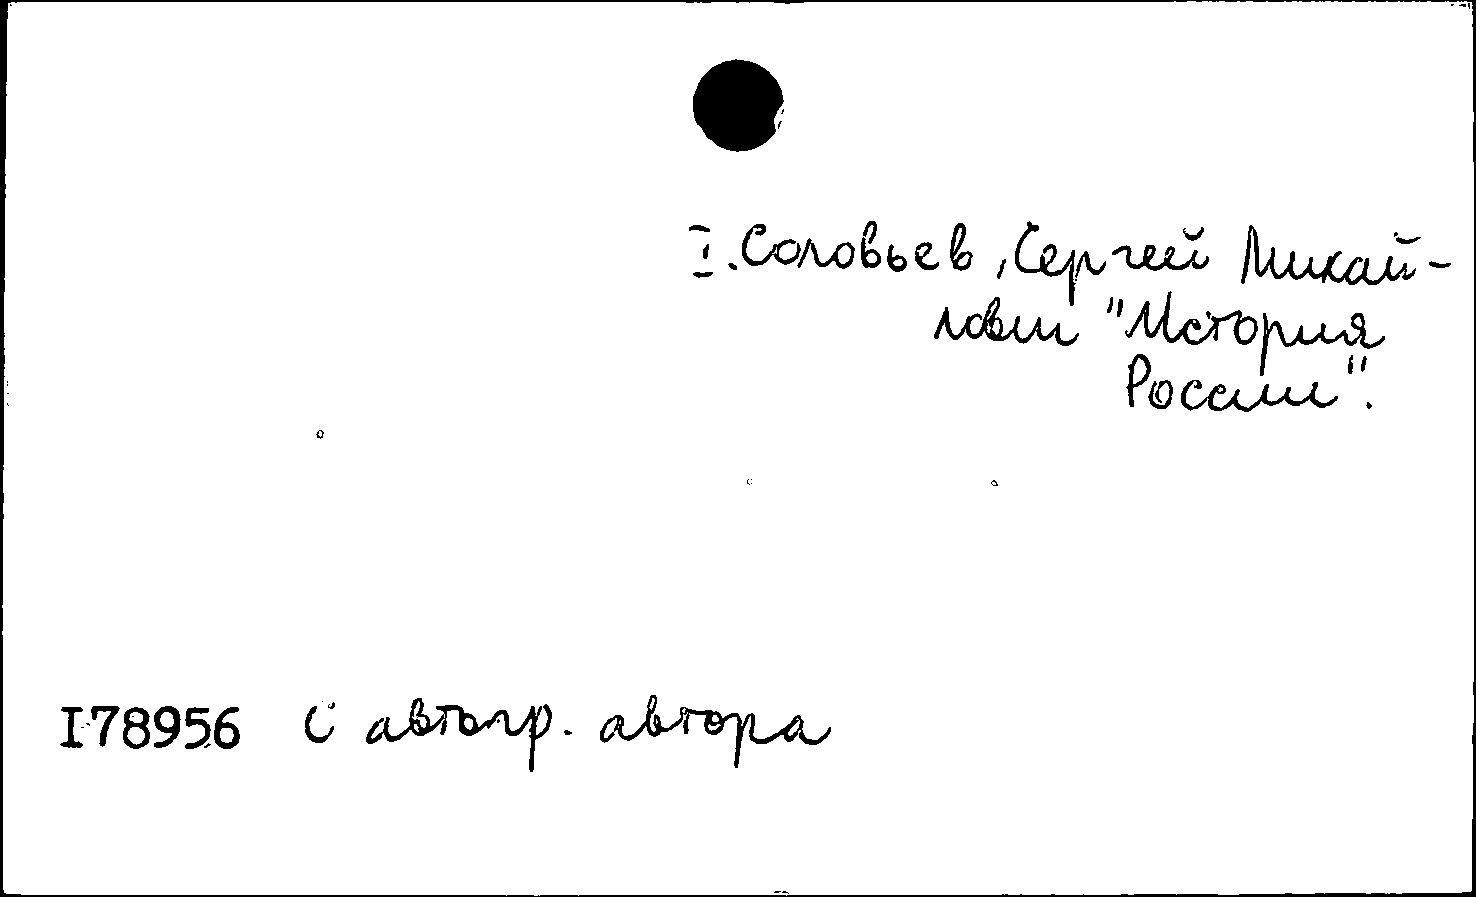 I. Соловьев, Сергей Михай-
лович "История
России".
I78956 С автогр. автора